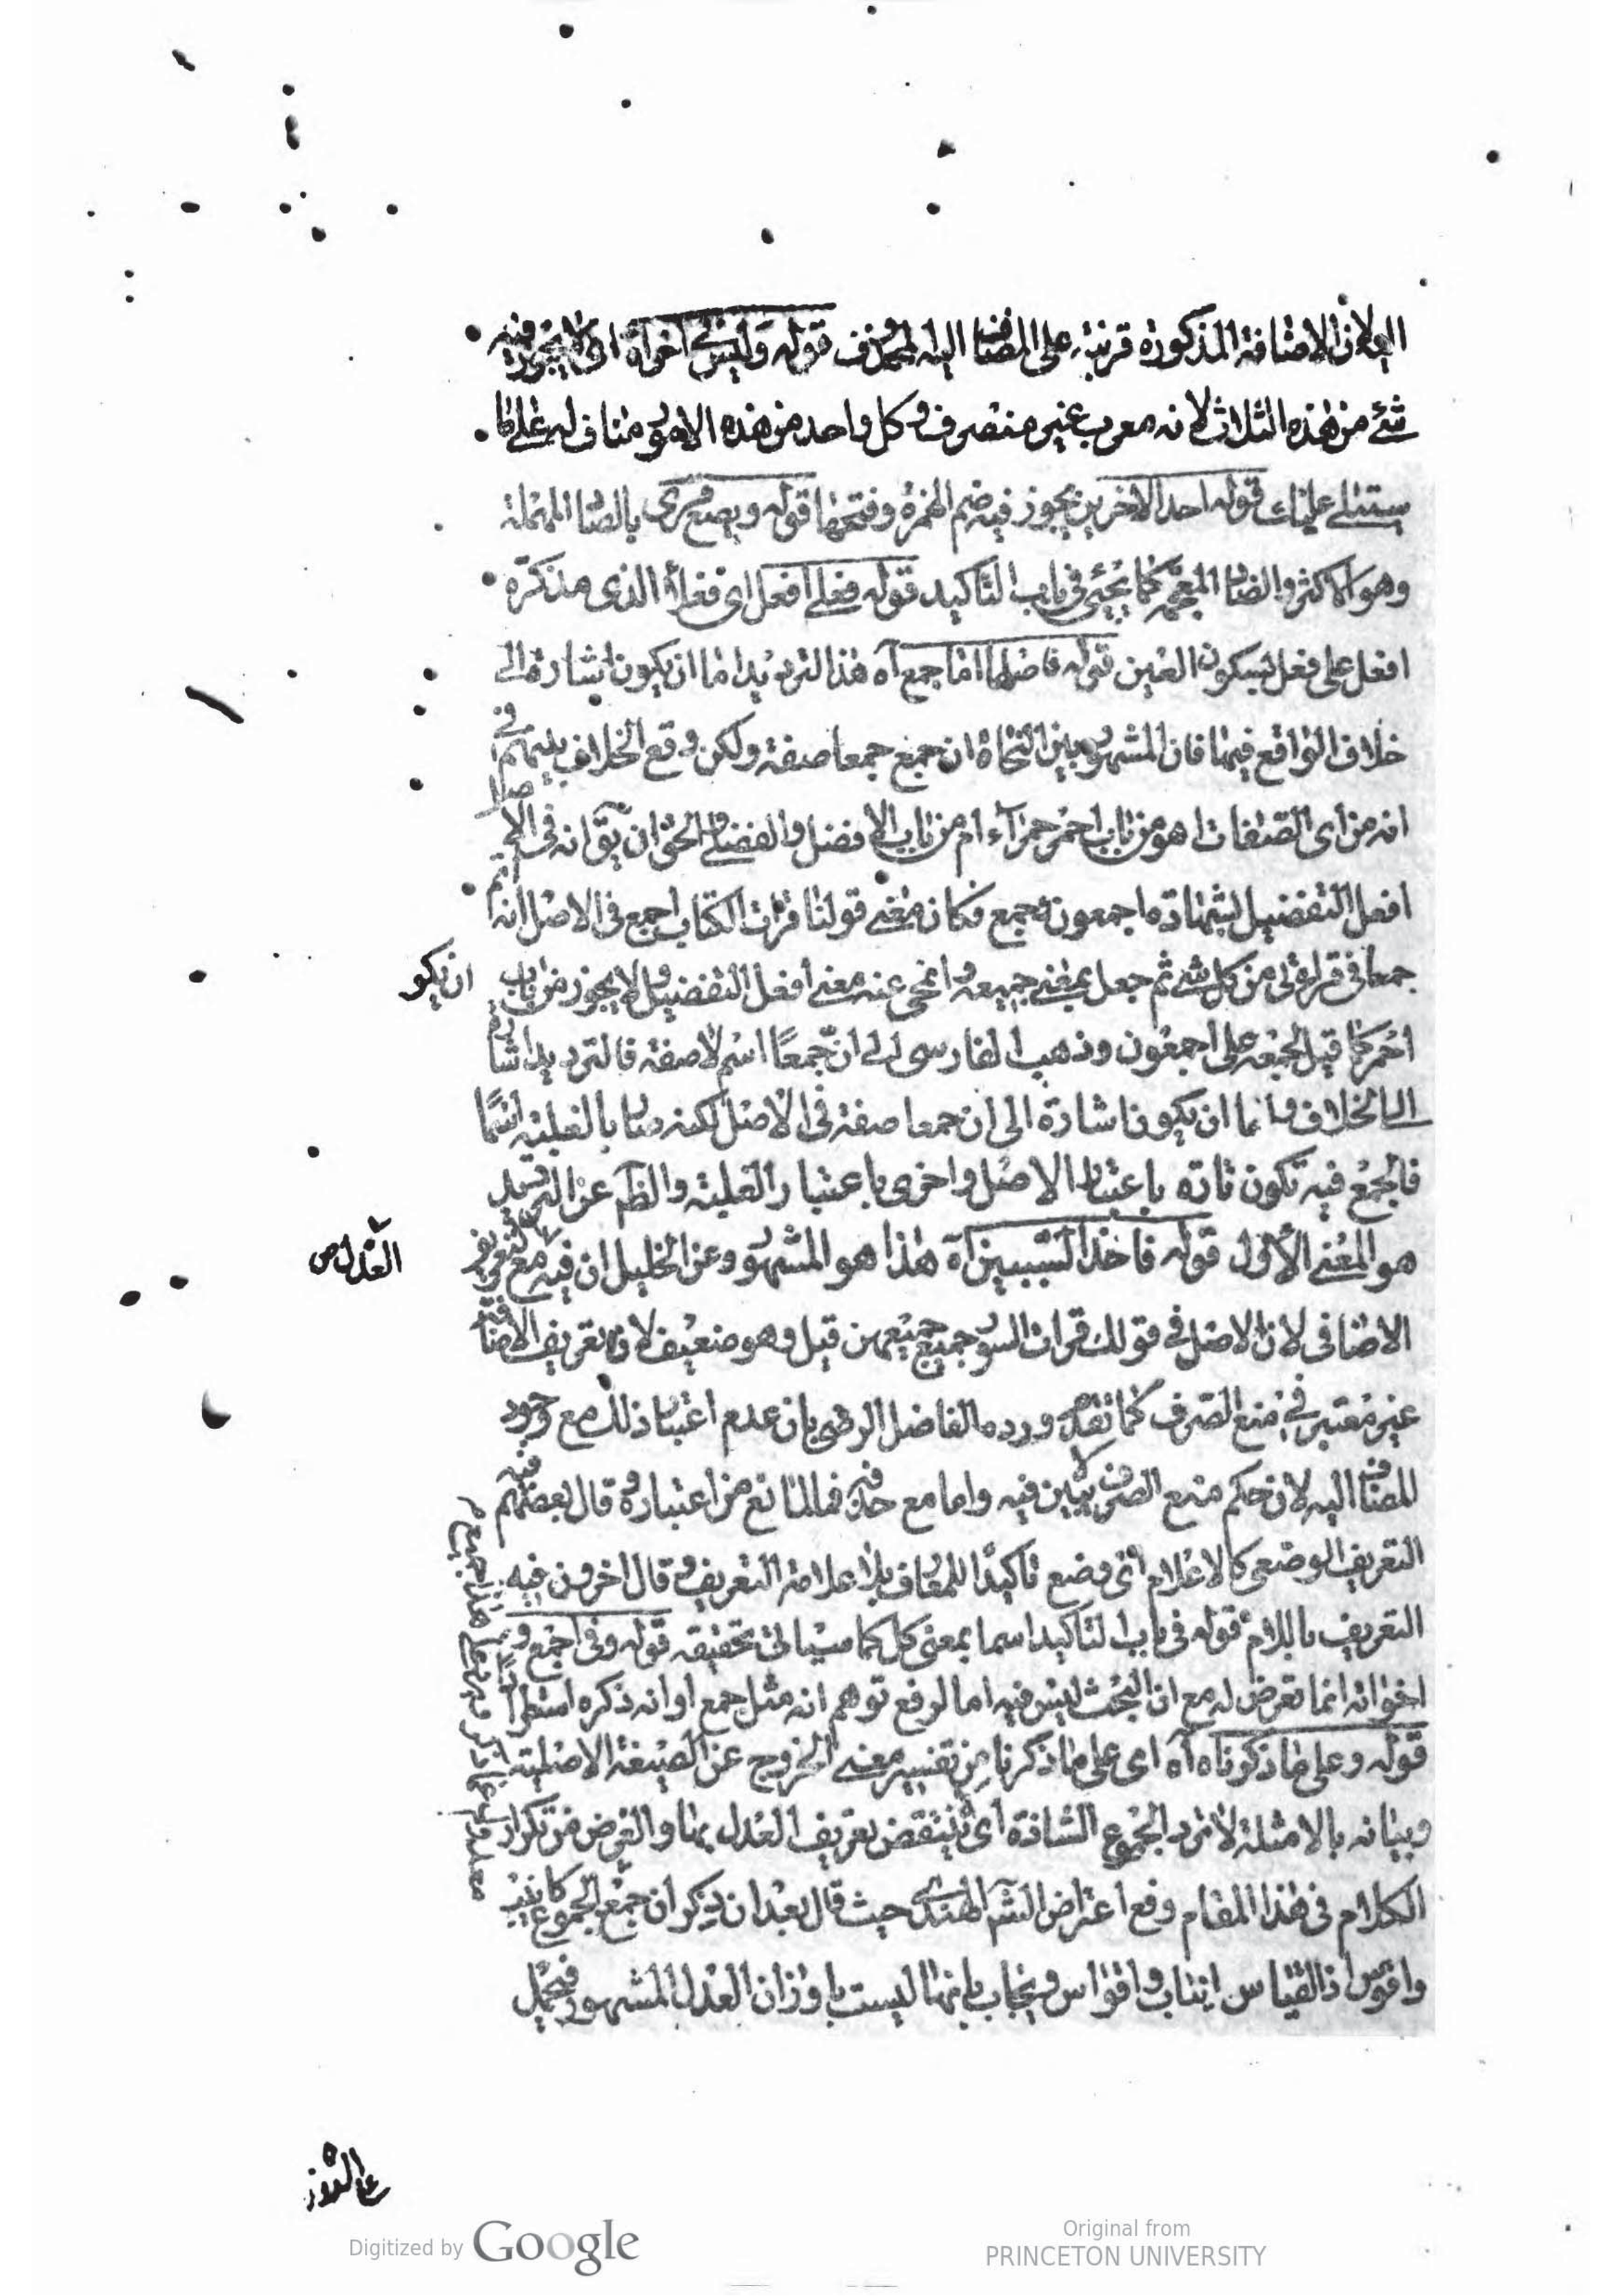 لان الاضافة المذكورة قرينة على المضاف اليه المحذوف قوله وليس في اخراة اى لا يجوز فيه
شئ من هذه الثلاث لانه معرب غير منصرف وكل واحد من هذه الامور مناف له على ما
ستتلى عليك قوله احد الاخرين يجوز فيه ضم الهمزة وفتحها قوله وبصع بالصاد المهملة
وهو الاكثر والضاد المعجمة كما يجئ فى باب التاكيد قوله فعلى افعل اى فعلاء الذى مذكره
افعل على فعل بسكون العين قوله فاصلها اما جمع آه هذا الترديد اما ان يكون اشارة الى
خلاف الواقع فيها فان المشهور بين النحاة ان جمع جمعا صفة ولكن وقع الخلاف بينهم فى
انه من اى الصفات اهو من باب احمر حمراء ام من باب الافضل والفضلى والحق ان يق انه فى الاصل
افعل التفضيل بشهادة اجمعون وجمع فكان معنى قولنا قرات الكتاب اجمع فى الاصل انه اتم
جمعا فى قراءتى من كل شئ ثم جعل بمعنى جميعه وانمحى عنه معنى افعل التفضيل ولا يجوز من باب
ان يكو
احمر كما قيل لجمعه على اجمعون وذهب الفارسى الى ان جمعًا اسم لا صفة فالترديد اشارة
الى الخلاف واما ان يكون اشارة الى ان جمعا صفة فى الاصل لكنه صار بالغلبة اسمًا
فالجمع فيه تكون تارة باعتبار الاصل واخرى باعتبار الغلبة والظم عن الترديد
هو المعنى الأول قوله فاحد السببين آه هذا هو المشهور وعن الخليل ان فيه مع التعريف
العدل ص
الاضافى لان الاصل فى قولك قرات السور جمع جميعهن قيل وهو ضعيف لان تعريف الاضافة
غير معتبر فى منع الصرف كما تقدم ورده الفاضل الرضى بان عدم اعتبار ذلك مع وجود
المضاف اليه لان حكم منع الصرف لا يتبين فيه واما مع حذفه فما المانع من اعتباره وقال بعضهم فيه
التعريف الوضعى كالاعلام اى وضع تاكيدًا للمعارف بلا علامة التعريف وقال اخرون فيه
التعريف باللام قوله فى باب التاكيد اسما بمعنى كل كما سياتى تحقيقه قوله وفى اجمع و
اخواته انما تعرض له مع ان البحث ليس فيه اما لرفع توهم انه مثل جمع او انه ذكره استطرادًا
قوله وعلى ما ذكرناه آه اى على ما ذكرنا من تفسير معنى الخروج عن الصيغة الاصلية
وبيانه بالامثلة لا يرد الجموع الشاذة اى لا ينتقض تعريف العدل بها والغرض من تكرار
الكلام فى هذا المقام دفع اعتراض الهندى حيث قال بعد ان يذكر ان جمع الجموع كانيب
واقوس اذ القياس انياب واقواس ويجاب بانها ليست باوزان العدل المشهور فيحمل
على الشذوذ
Digitized by Google
Original from
PRINCETON UNIVERSITY